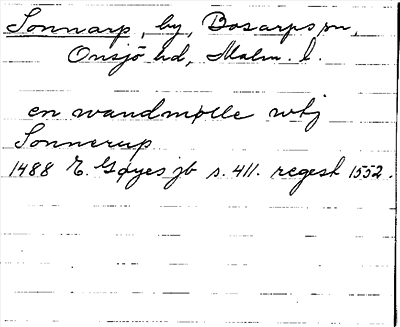 Sonnarp, by, Bosarps sn,
Onsjö hd, Malm. l.
en wandmølle wbj
Sonnerup
1488 E. Gøyes jb s. 411. regest 1552.